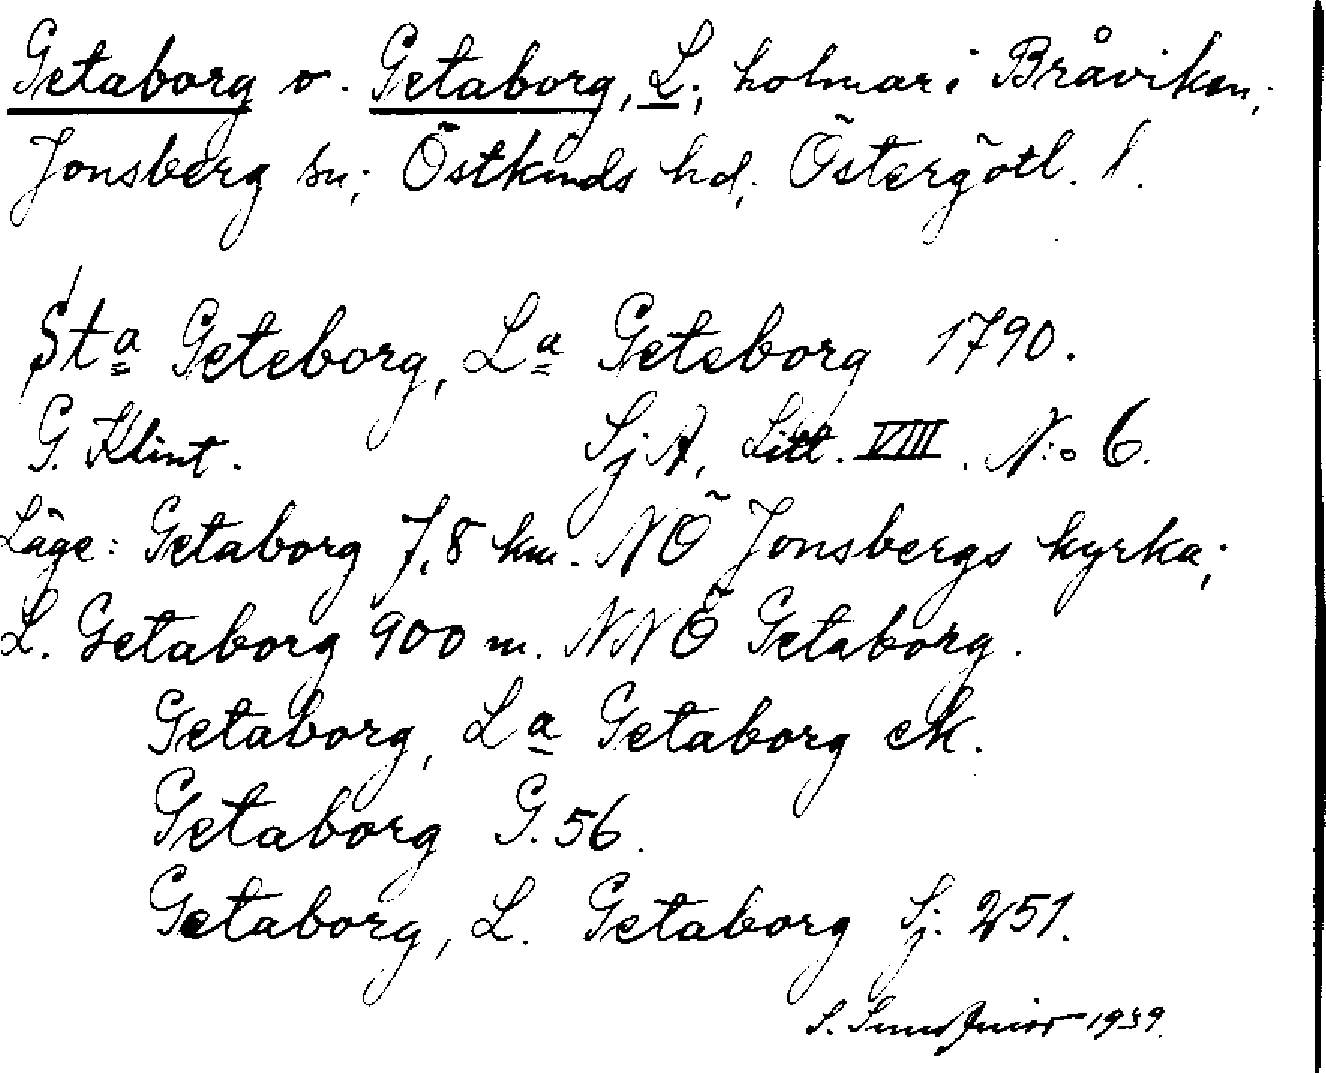 Getaborg o. Getaborg, L.; holmar i Bråviken,
Jonsberg sn; Östkinds hd; Östergötl. l.
Sta Geteborg, La Geteborg 1790.
G. Klint. SjA, Litt. VIII. N:o 6.
Läge: Getaborg 7,8 km. NÖ Jonsbergs kyrka;
L. Getaborg 900 m. NNÖ Getaborg.
Getaborg, La Getaborg ek.
Getaborg G. 56.
Getaborg, L. Getaborg Sj. 251.
S. 1939.